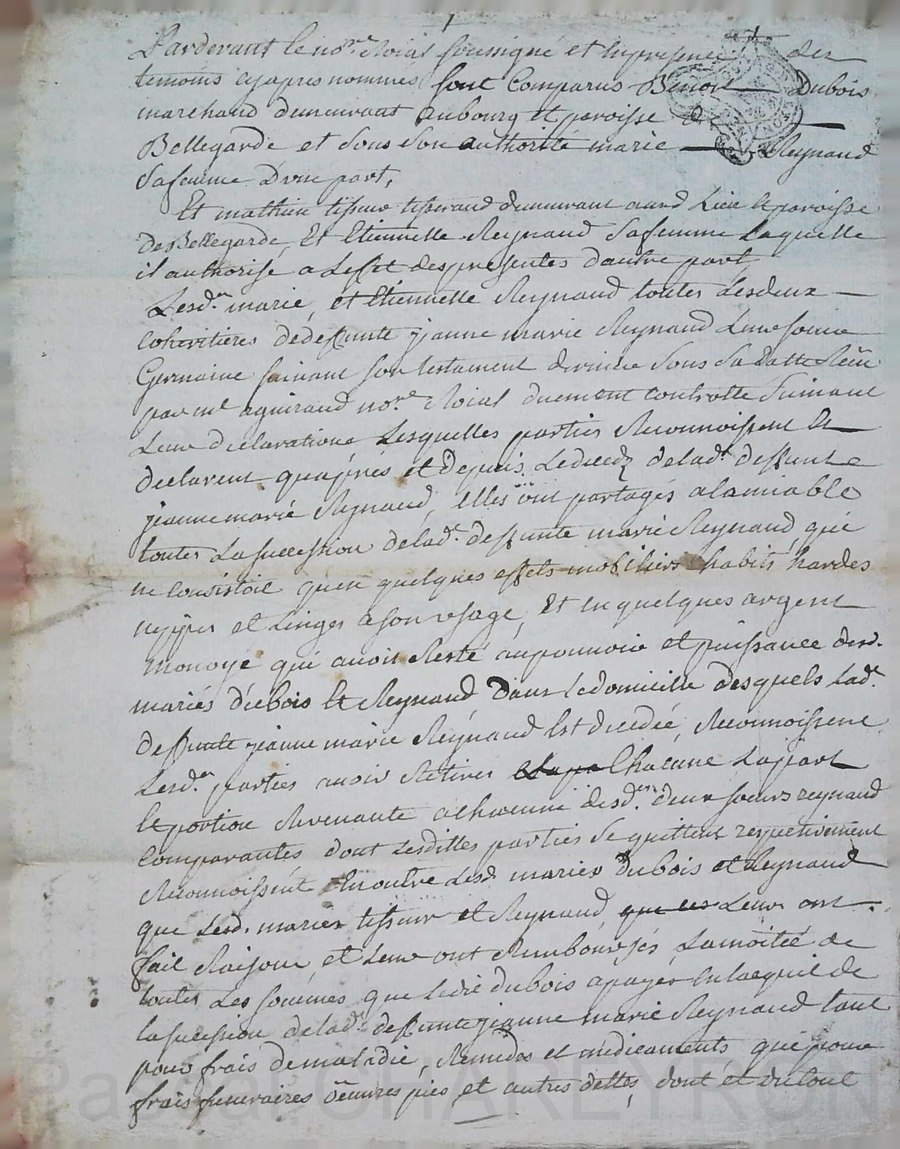 Pardevant le no.re Roial soussigné et en presence des
temoins cy apres nommés sont Comparus Benoit Dubois
marchand demeurant au bourg et paroisse de
Bellegarde et sous son authorité marie Reynaud
sa femme D'une part,
Et mathieu tisseur tisserand demeurant aud Lieu et paroisse
de Bellegarde, Et Etiennette Reynaud sa femme Laquelle
il authorise a Leffet des presentes d'autre part
Lesd.es marie, et Etiennette Reynaud toutes Lesdeux
cohéritières de deffunte jeanne marie Reynaud Leur soeur
Germaine suivant son testament dernier sous sa datte Reçu
par m.e no.re Roial duement controllé suivant
Leur déclaration Lesquelles parties Reconnoissent Et
declarent qu'aprés et depuis Ledecedz delad.e deffunte
jeanne marie Reynaud, Elles ont partagés alamiable
toutes La succession delad.e deffunte marie Reynaud, qui
ne consistoit quen quelques effets mobiliers habits hardes
nippes et Linges a son usage, Et en quelques argent
monoyé qui avoit Resté aupouvoir et puissance desd.
mariés dubois et Reynaud, Dans le domicille desquels Lad.e
deffunte jeanne marie Réynaud Est decedée, Reconnoissent
Lesd.es parties avoir Retirés Chacune Lapart
et portion Revenante a chacune desd.es deux soeurs reynaud
Comparantes dont Lesdittes parties se quittent respectivement
Reconnoissent En outre Lesd. mariés Dubois et Reynaud
que Lesd. mariés tisseur et Reynaud, que les Leurs ont
fait Raison, et Leur ont Remboursés Lamoitié de
toutes Les sommes que Ledit dubois apayer En lacquit de
la succession delad.e deffunte jeanne marie Reynaud tant
pour frais de maladie, Remedes et medicaments que pour
frais funeraires oeuvres pies et autres dettes, dont et du tout
Pascal CHAREYRON